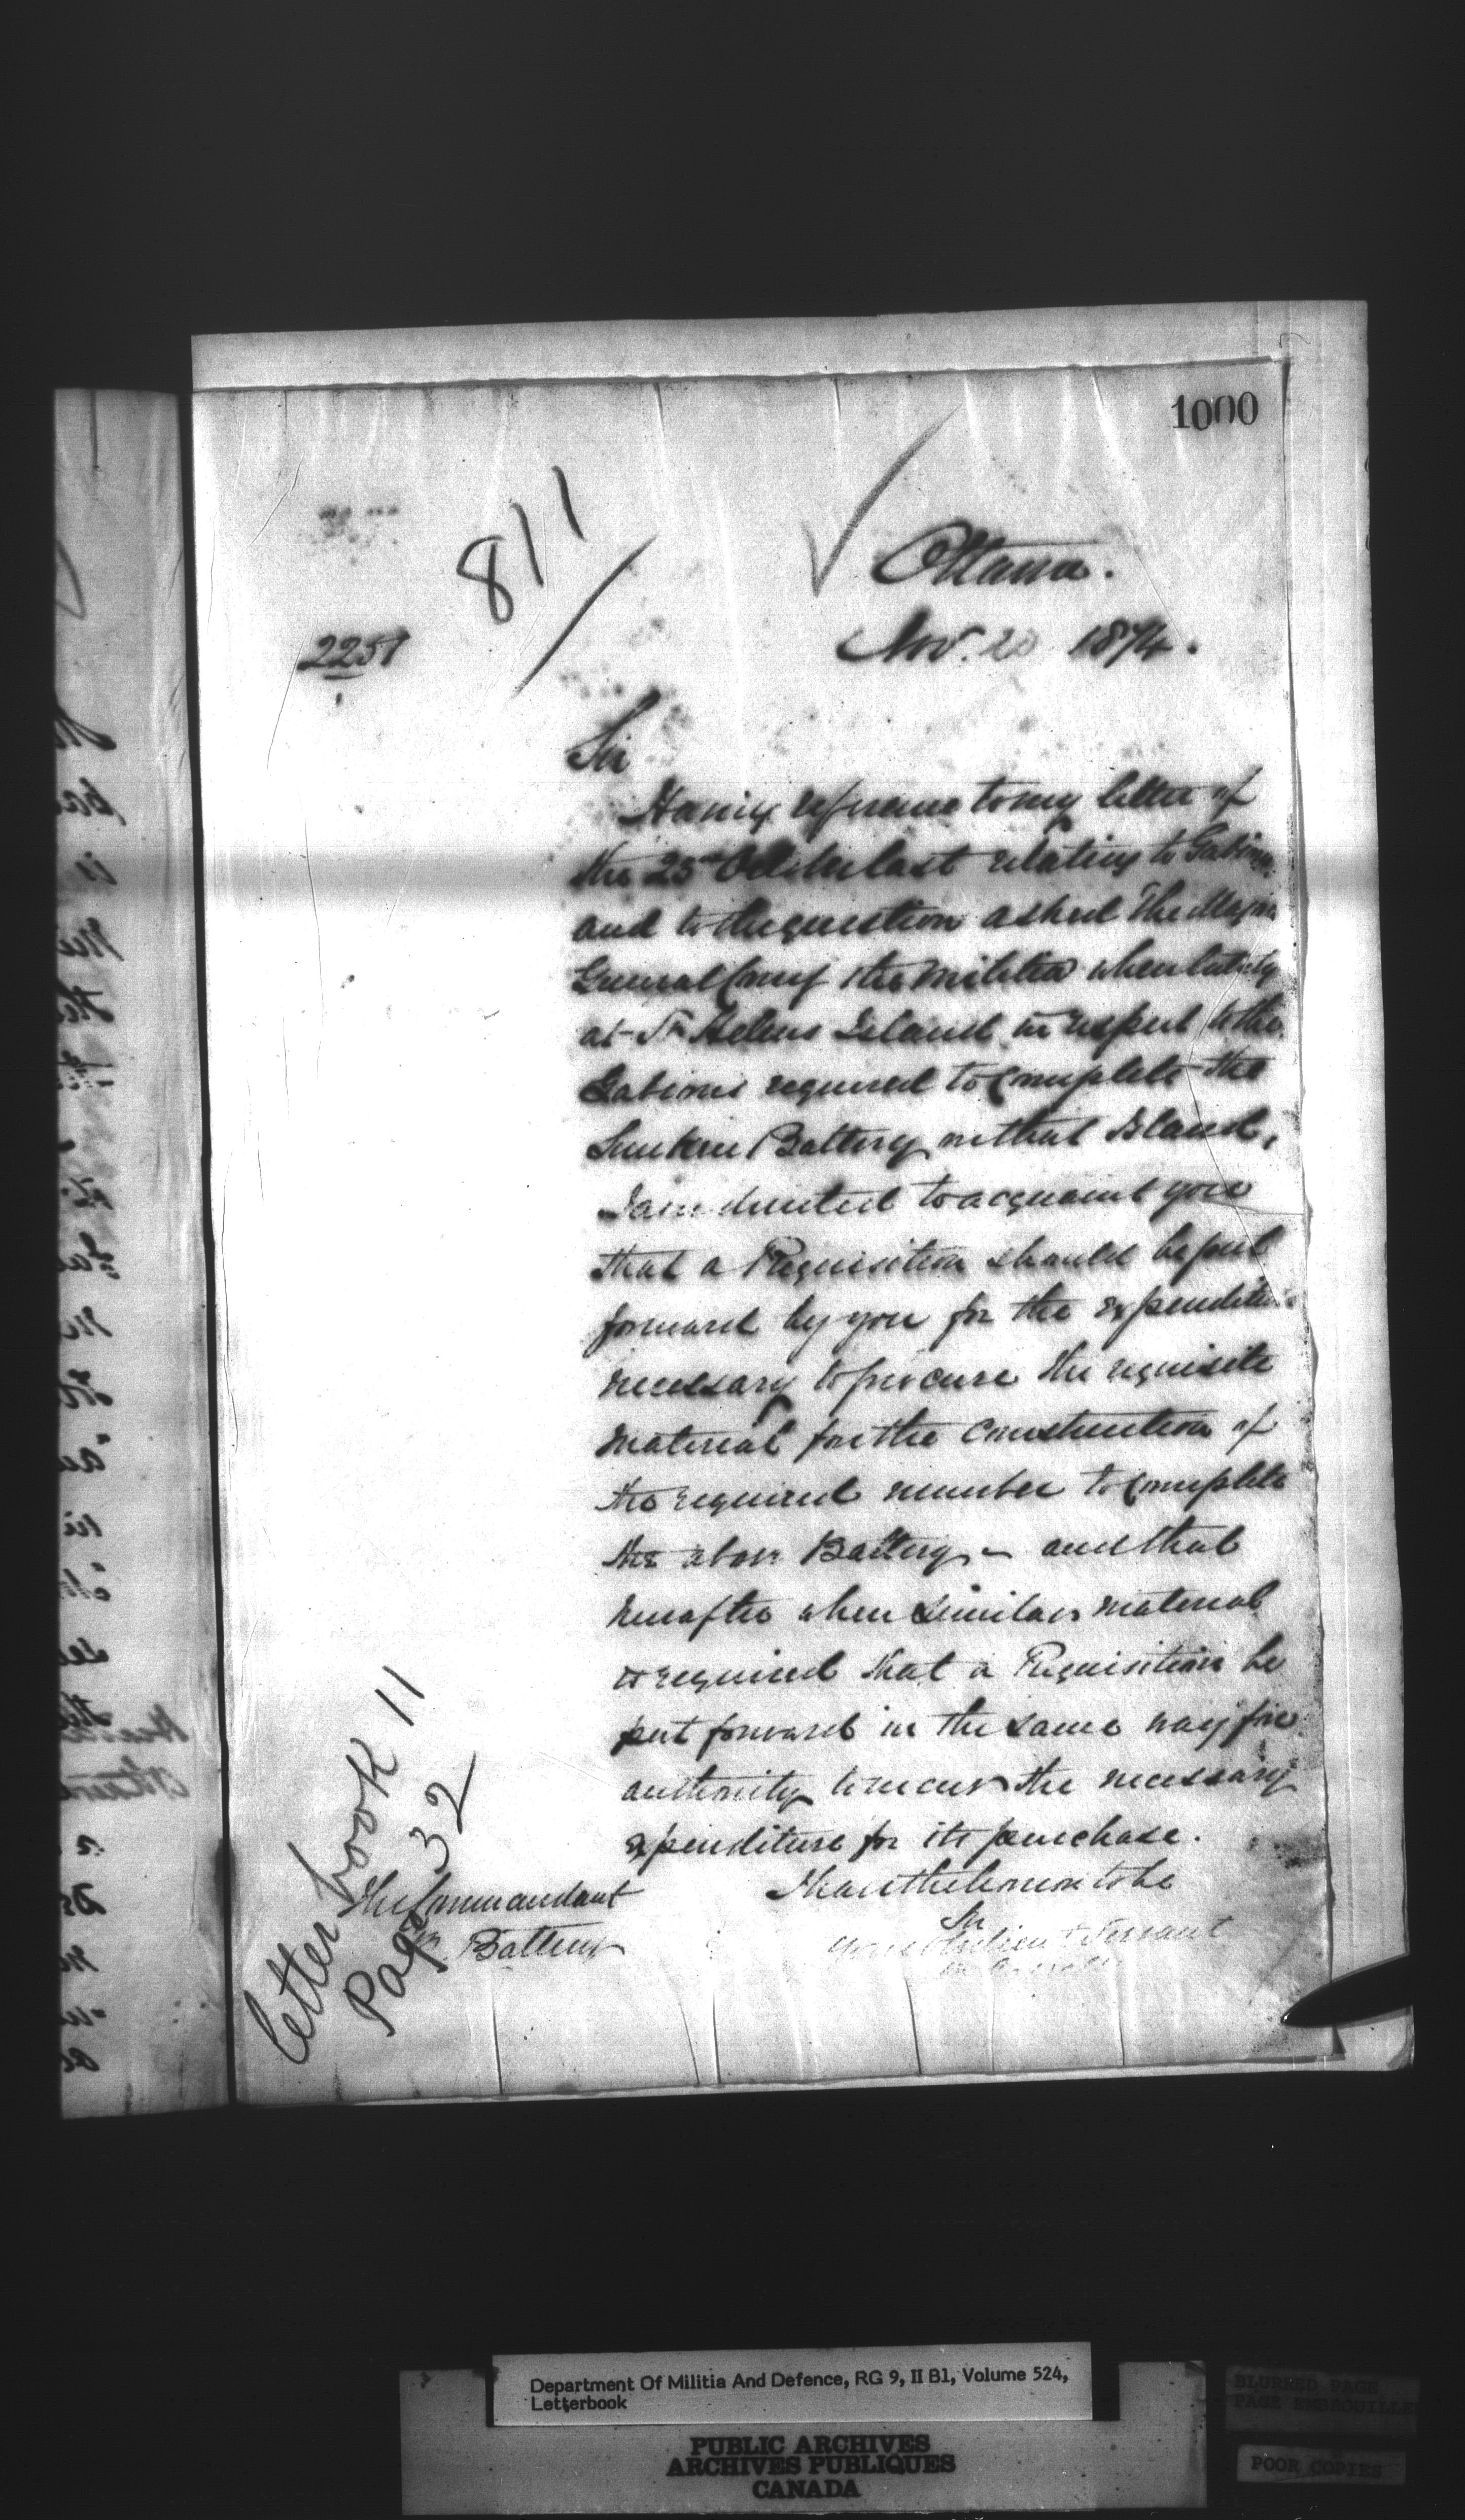 1000
811
Ottawa.
Nov. 20 1874.
2251
Sir
Having reference to my letter of
the 25th October last relating to Gabions
and to the question asked The Major
General Comg the Militia when lately
at St Helens Island in respect to the
Gabions required to Complete the
Sunken Battery on that Island,
I am directed to acquaint you
that a Requisition should be put
forward by you for the expenditure
necessary to procure the requisite
material for the Construction of
the required number to Complete
the above Battery, – and that
hereafter when similar material
is required that a Requisition be
put forward in the same way for
authority to incur the necessary
expenditure for its purchase.
I have the honor to be
Sir
Your Obedient Servant
The Commandant
Battery
Letter book 11
Page 32
Department Of Militia And Defence, RG 9, II B1, Volume 524,
Letterbook
PUBLIC ARCHIVES
ARCHIVES PUBLIQUES
CANADA
BLURRED PAGE
PAGE EMBROUILLEE
POOR COPIES